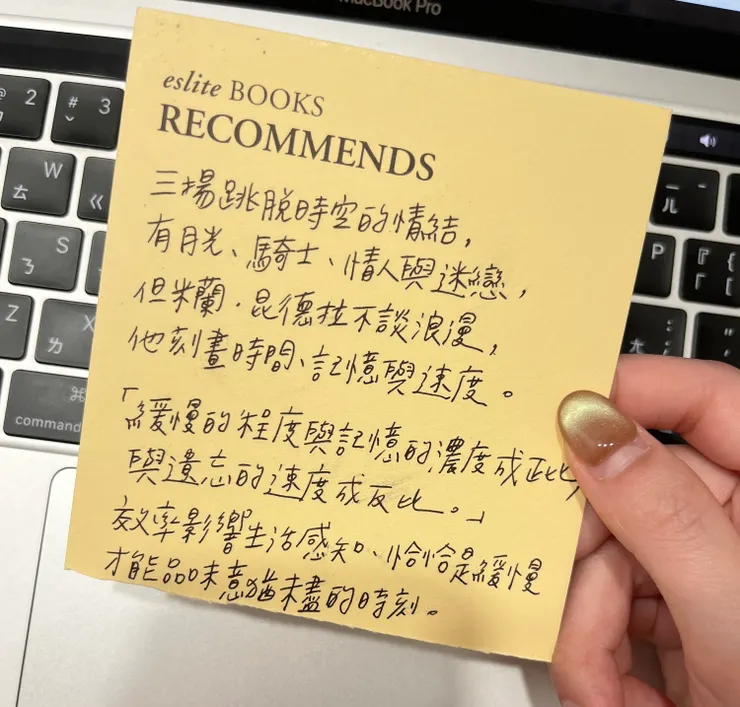 MacBook Pro
eslite BOOKS
RECOMMENDS
三場跳脫時空的情結，
有月光、騎士、情人與迷戀，
但米蘭．昆德拉不談浪漫，
他刻畫時間、記憶與速度。
「緩慢的程度與記憶的濃度成正比，
與遺忘的速度成反比。」
效率影響生活感知、恰恰是緩慢
才能品味意猶未盡的時刻。
2
# 3
W
ㄊ
ㄍ
S
ㄋ
Z
X
ㄌ
⌘
command
P
{
[
ㄦ